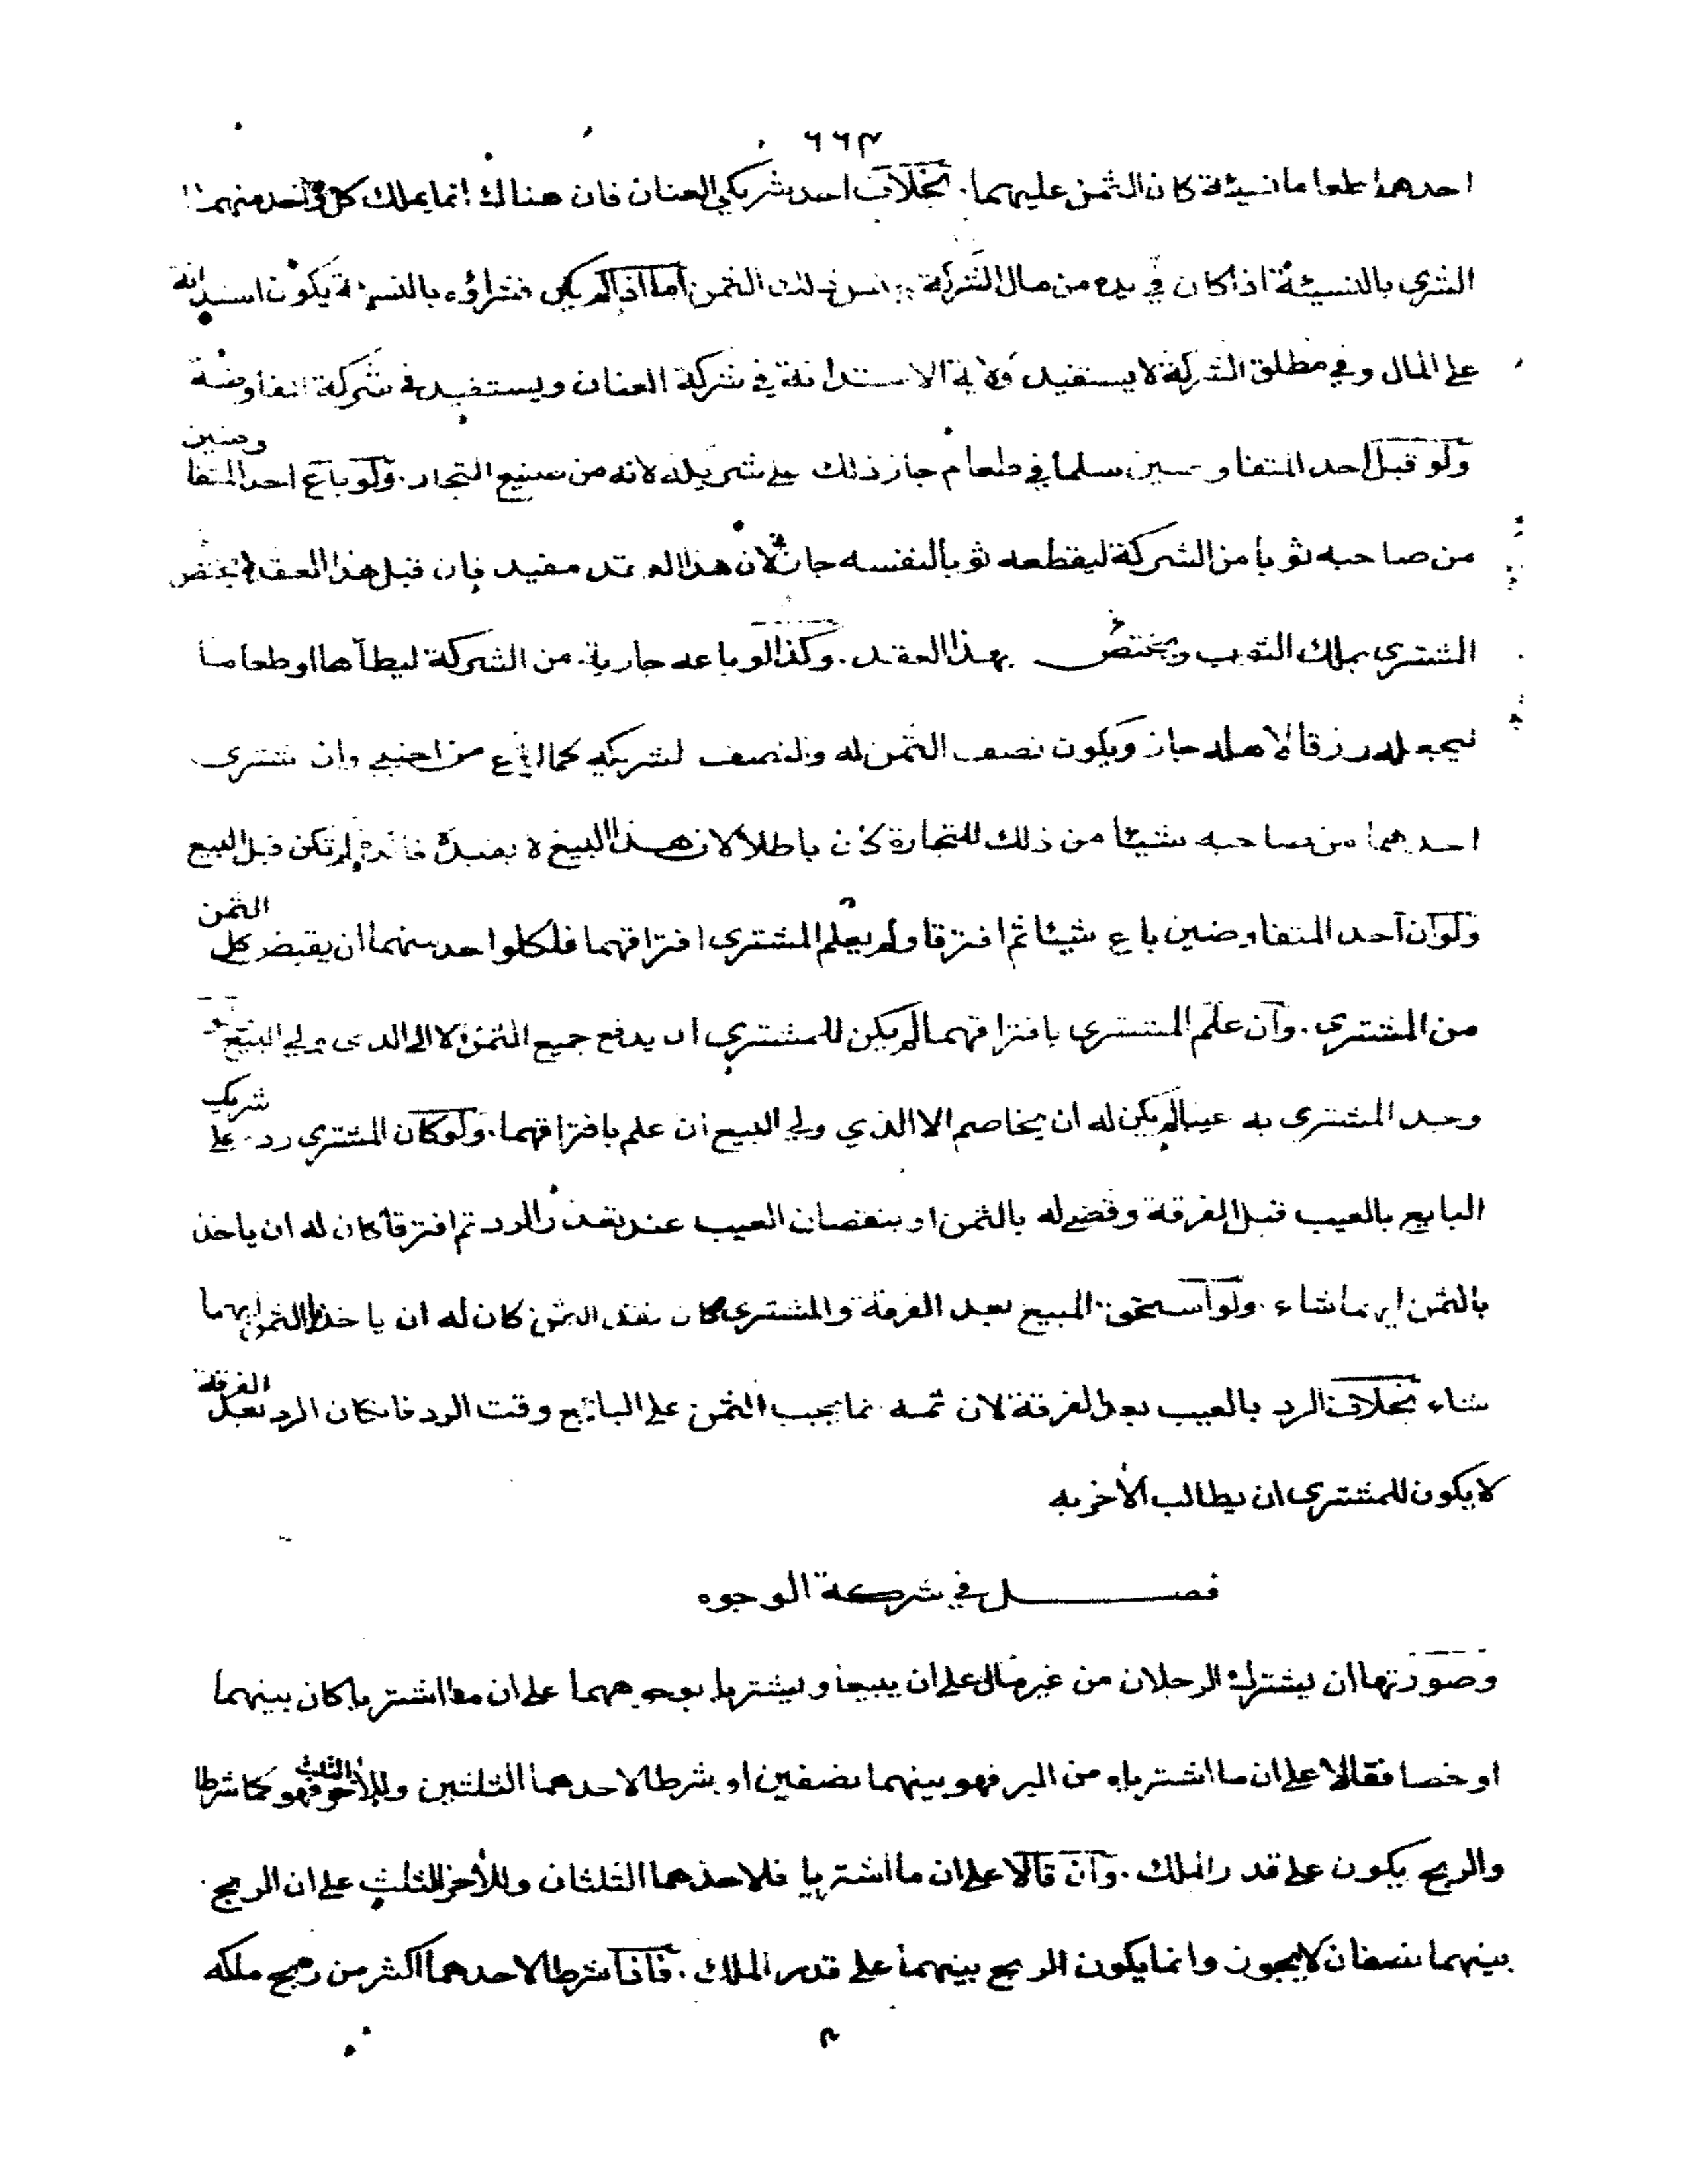 ٦٦٣
احدهما طعاما نسيئة كان الثمن عليهما. بخلاف احد شريكي العنان فان هناك انما يملك كل واحد منهما
الشرى بالنسيئة اذا كان في يده من مال الشركة جنس ذلك الثمن اما اذا لم يكن فشراؤه بالنسيئة يكون استدانة
على المال وفي مطلق الشركة لا يستفيد ولاية الاستدانة في شركة العنان ويستفيد في شركة المفاوضة
ولو قبل احد المتفاوضين سلما في طعام جاز ذلك على شريكه لانه من صنيع التجار. ولو باع احد المتفاوضين
من صاحبه ثوبا من الشركة ليقطعه ثوبا لنفسه جاز لان هذا العقد مفيد فان قبل هذا العقد لا يختص
المشترى بملك الثوب ويختص بهذا العقد. وكذا لو باعه جارية من الشركة ليطأها او طعاما
ليجعله رزقا لاهله جاز ويكون نصف الثمن له والنصف لشريكه كما لو باع من اجنبي وان اشترى
احدهما من صاحبه شيئا من ذلك للتجارة كان باطلا لان هذا البيع لا يفيد فائدة لم تكن قبل البيع
ولو ان احد المتفاوضين باع شيئا ثم افترقا ولم يعلم المشترى افتراقهما فلكل واحد منهما ان يقبض كل الثمن
من المشترى. وان علم المشترى بافتراقهما لم يكن للمشترى ان يدفع جميع الثمن الا الى الذى ولي البيع
وجد المشترى به عيبا لم يكن له ان يخاصم الا الذي ولي البيع ان علم بافتراقهما. ولو كان المشترى رد على شريك
البايع بالعيب قبل الفرقة وقضى له بالثمن او بنقصان العيب عند تعذر الرد ثم افترقا كان له ان ياخذ
بالثمن ايهما شاء. ولو استحق المبيع بعد الفرقة والمشترى كان نقد الثمن كان له ان ياخذ بالثمن ايهما
شاء بخلاف الرد بالعيب بعد الفرقة لان ثمه انما يجب الثمن على البايع وقت الرد فاذا كان الرد بعد الفرقة
لا يكون للمشترى ان يطالب الأخر به
فصل في شركة الوجوه
وصورتها ان يشترك الرجلان من غير مال على ان يبيعا ويشتريا بوجوههما على ان ما اشتريا كان بينهما
او خصا فقالا على ان ما اشترياه من البر فهو بينهما نصفين او شرطا لاحدهما الثلثين وللأخر الثلث فهو كما شرطا
والربح يكون على قدر الملك. وان قالا على ان ما اشتريا فلاحدهما الثلثان وللأخر الثلث على ان الربح
بينهما نصفان لا يجوز وانما يكون الربح بينهما على قدر الملك. فاذا شرطا لاحدهما اكثر من ربح ملكه